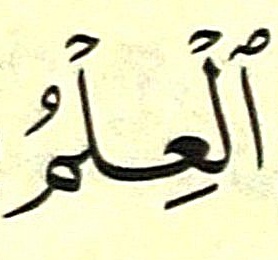 ٱلْعِلْمُ